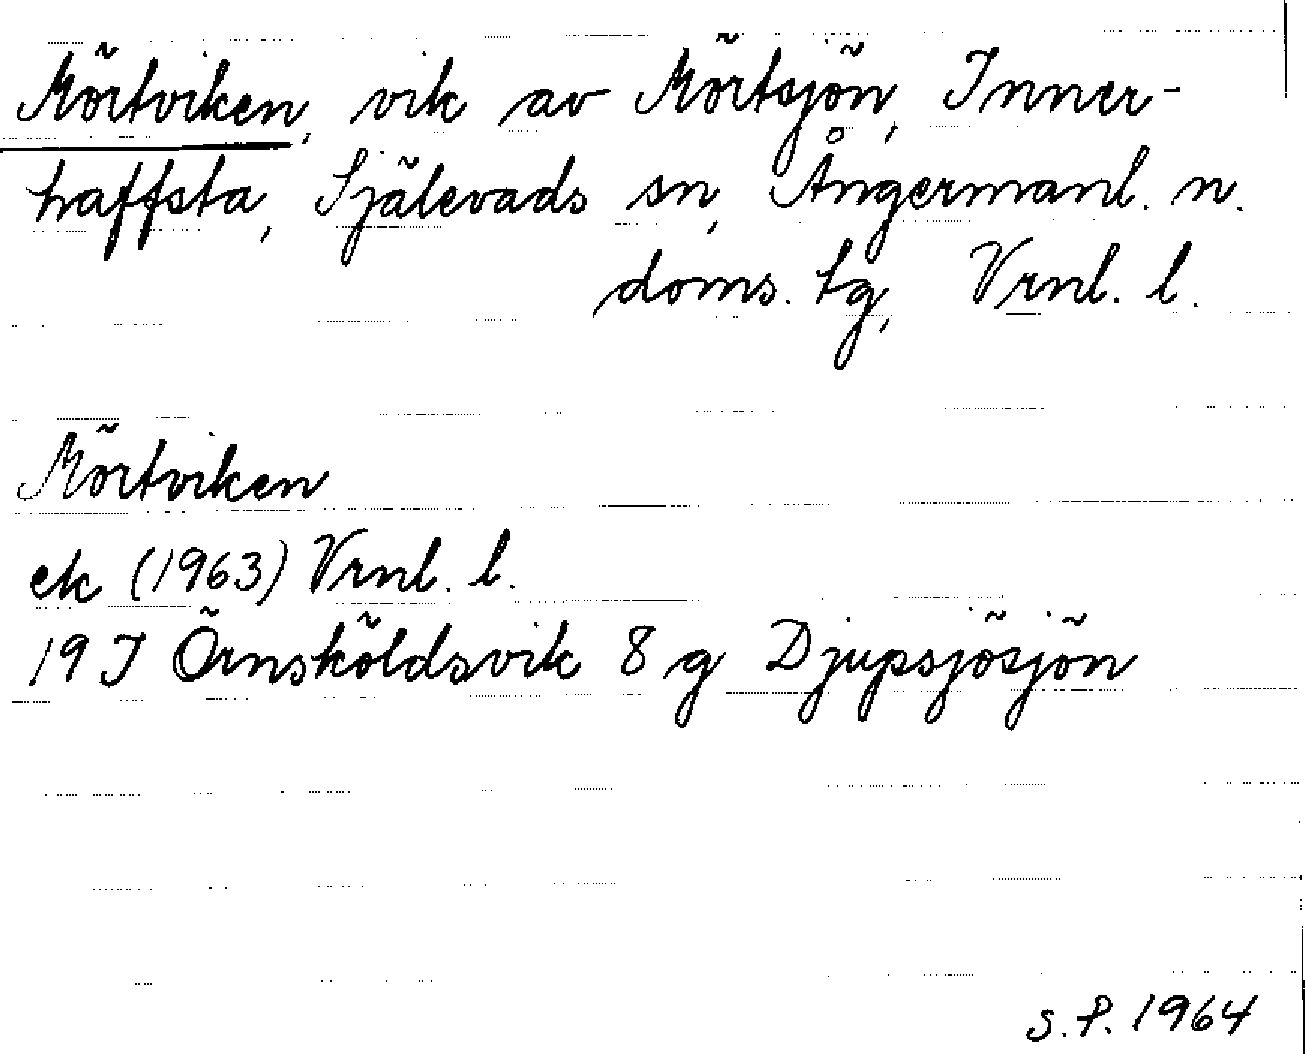 Mörtviken, vik av Mörtsjön, Inner-
haffsta, Själevads sn, Ångermanl. n.
doms. tg, Vrnl. l.
Mörtviken
ek (1963) Vrnl. l.
19 J Örnsköldsvik 8 g Djupsjösjön
S.P. 1964